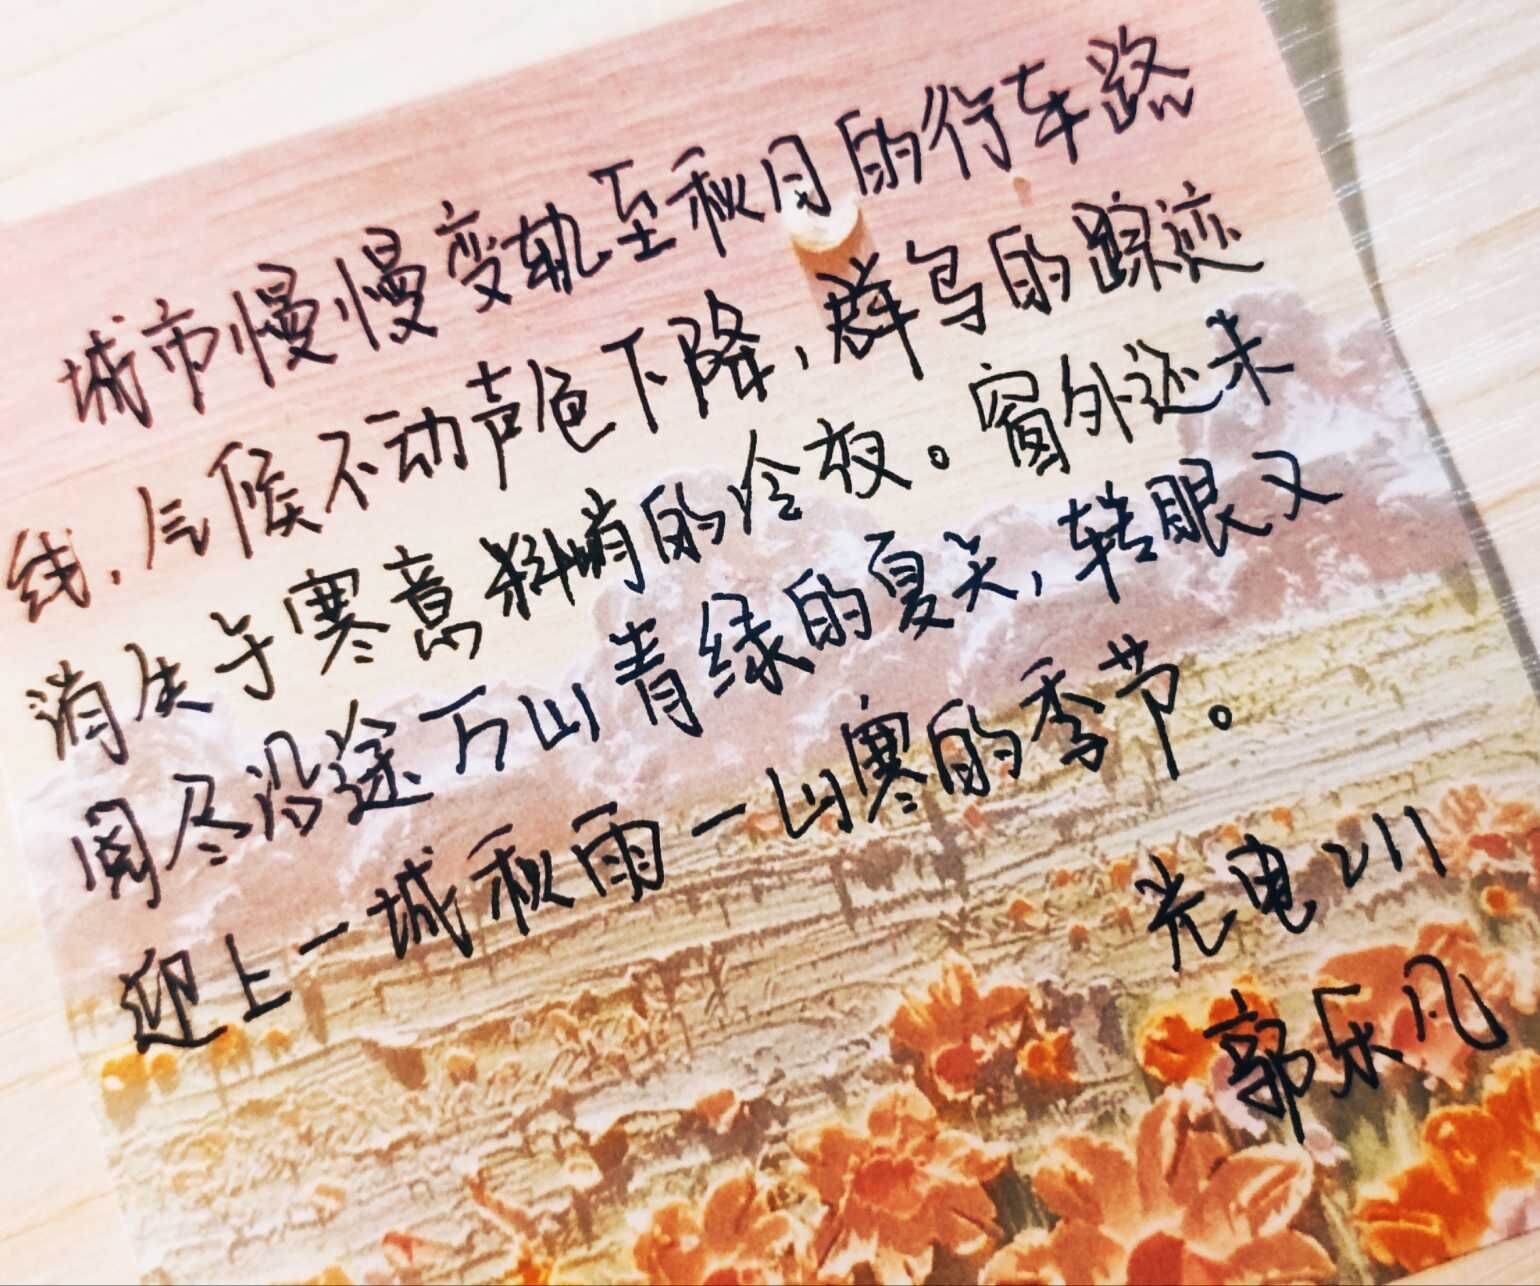 城市慢慢变轨至秋日的行车路
线,气候不动声色下降,群鸟的踪迹
消失于寒意料峭的冷夜。窗外还未
阅尽沿途万山青绿的夏天,转眼又
迎上一城秋雨一山寒的季节。
光电211
郭乐凡